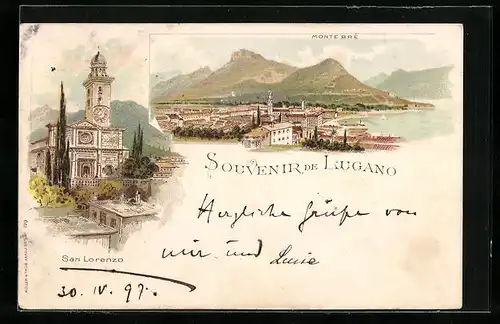 MONTE BRÈ
SOUVENIR DE LUGANO
Herzliche Grüße von
mir und Luise
San Lorenzo
30. IV. 97.